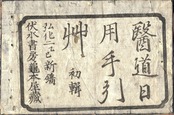 醫道日
用手引
艸 初輯
弘化二乙巳新鐫
伏水書房龜本屋藏